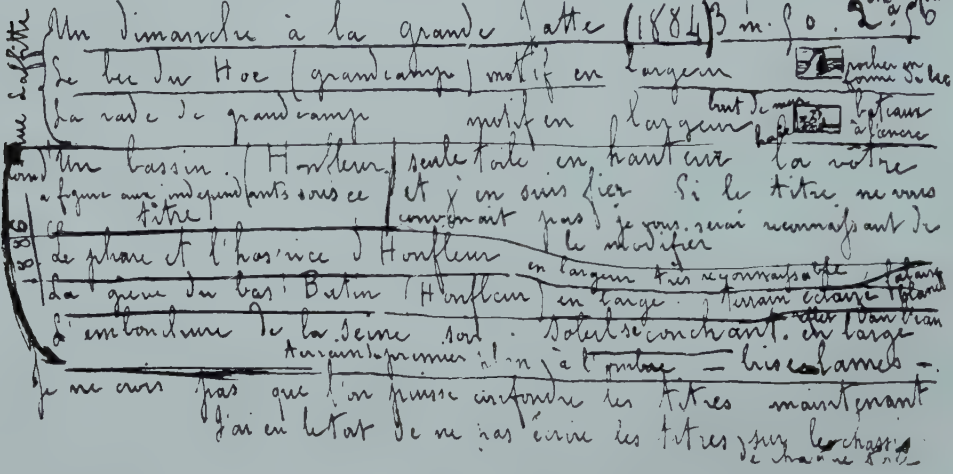 Un Dimanche à la grande Jatte (1884) 3 m. 50. 2
rue Laffitte
Le bec du Hoc (grandcamp) motif en largeur
rocher en
forme de bec
La rade de grandcamp motif en largeur
bateaux
à l'ancre
Un bassin (Honfleur) seule toile en hauteur la votre
a figuré aux indépendants sous ce
titre
et j'en suis fier Si le titre ne vous
convenait pas je vous serai reconnaissant de
le modifier
1886
Le phare et l'hospice d'Honfleur
en largeur très reconnaissable
La grève du bas Butin (Honfleur) en large. terrain éclairé
L'embouchure de la Seine soir. Soleil se couchant. en large
Terrain à l'ombre — brise lames —
Je ne crois pas que l'on puisse confondre les titres maintenant
J'ai eu le tort de ne pas écrire les titres sur le chassis
de chaque